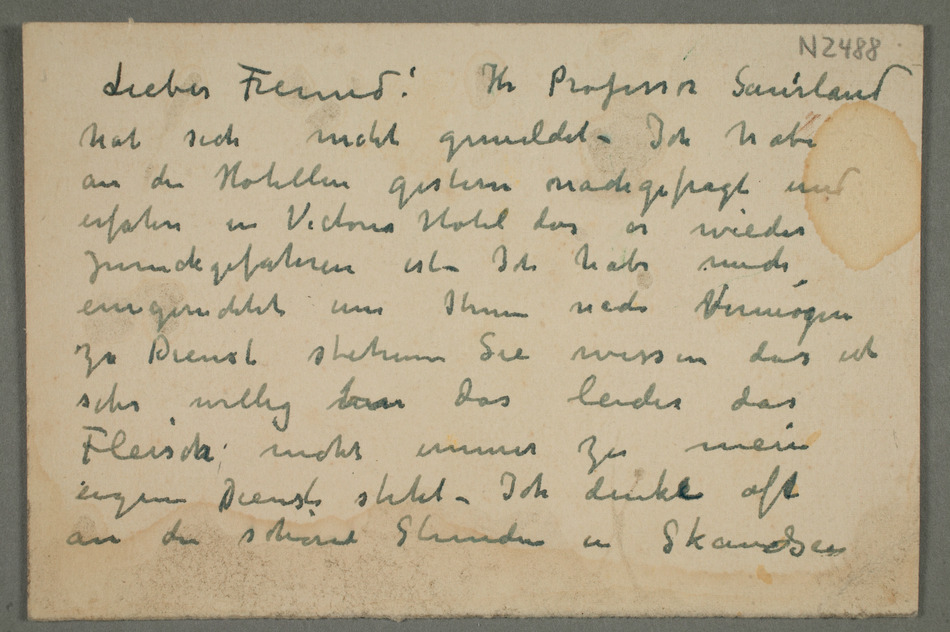 N2488
Lieber Freund! Ihr Professor Sauerland
hat sich nicht gemeldet – Ich habe
an die Hotellen gestern nachgefragt und
erfahre in Victoria Hotel das er wieder
zurückgefahren ist – Ich habe mich
eingerichtet um Ihnen nach Vermögen
zu Dienst stehen Sie wissen das ich
sehr willig bin das leider das
Fleisch nicht immer zu mein
eigene Dienste steht – Ich denke oft
an die schöne Stunden in